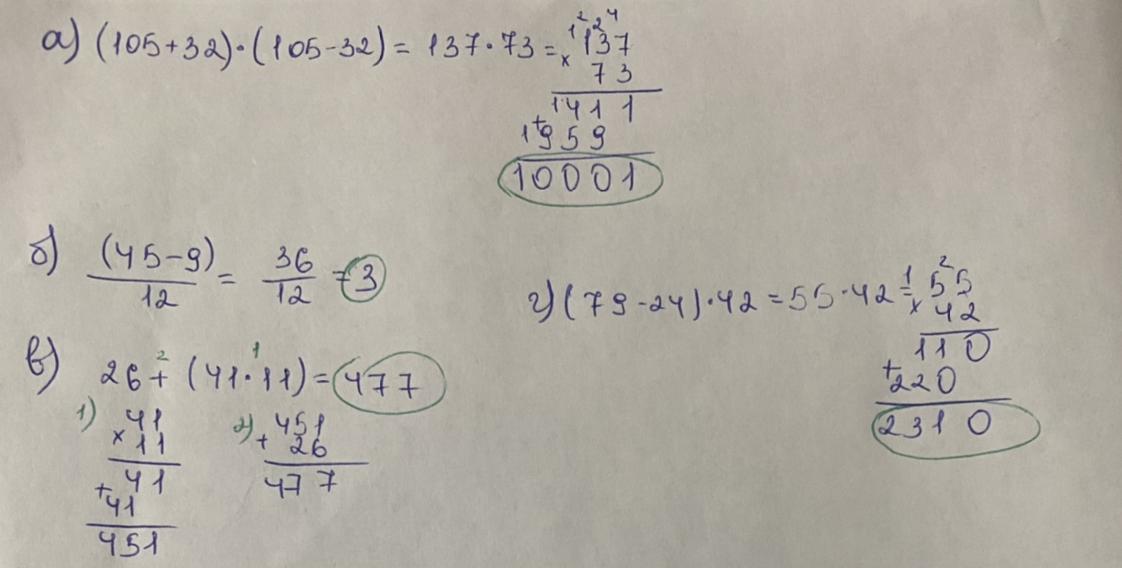 а) (105+32)·(105-32) = 137·73 = 137
1 2 2 4
× 73
1411
+
1 959
10001
б) (45-9)/12 = 36/12 = 3
в) 26 + (41·11) = 477
2 1
1) 41
× 11
41
+ 41
451
2) 451
+ 26
477
г) (79-24)·42 = 55·42 = 55
1 2
× 42
110
+ 220
2310